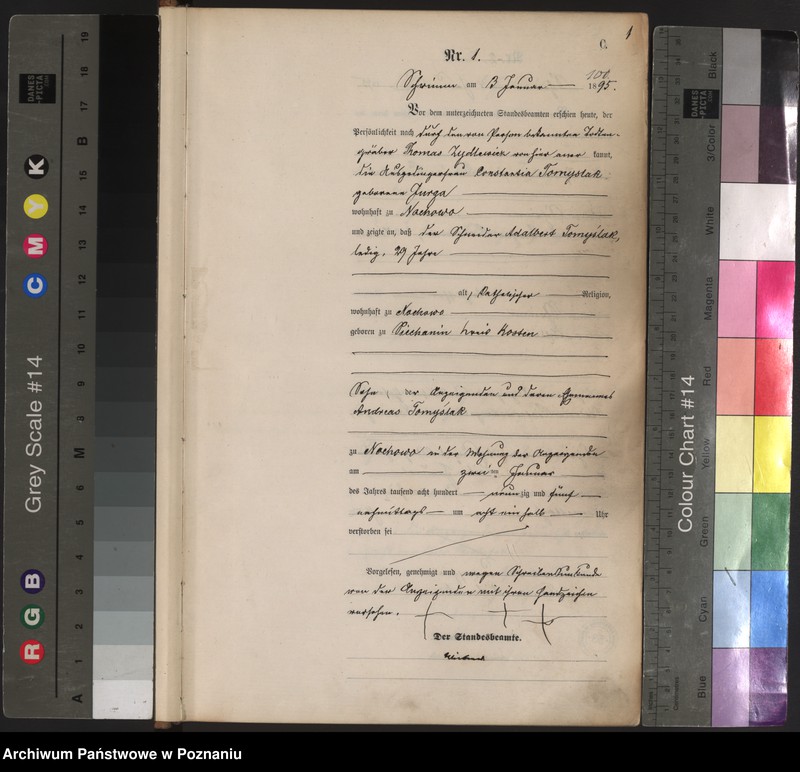 1
C.
Nr. 1.
Schrimm am 3 Januar 1895.
Vor dem unterzeichneten Standesbeamten erschien heute, der
Persönlichkeit nach durch den von Person bekannten Todten-
gräber Thomas Zydlewicz von hier aner kannt,
die Ausgedingerfrau Constantia Tomyslak
geborene Jurga
wohnhaft zu Nochowo
und zeigte an, daß der Schneider Adalbert Tomyślak,
ledig, 29 Jahre
alt, katholischer Religion,
wohnhaft zu Nochowo
geboren zu Piechanin Kreis Kosten
Sohn der Anzeigenden und deren Ehemannes
Andreas Tomyslak
zu Nochowo in der Wohnung der Anzeigende
am zweiten Januar
des Jahres tausend acht hundert neunzig und fünf
nachmittags um acht ein halb Uhr
verstorben sei
Vorgelesen, genehmigt und wegen Schreibensunkunde
von der Anzeigenden mit ihren Handzeichen
versehen.
Der Standesbeamte.
Grey Scale #14
DANES
-PICTA
.COM
A 1 2 3 4 5 6 M 8 9 10 11 12 13 14 15 B 17 18 19
R G B
C M Y K
Colour Chart #14
DANES
-PICTA
.COM
Blue
Cyan
Green
Yellow
Red
Magenta
White
3/Color
Black
Inches
Centimetres
Archiwum Państwowe w Poznaniu